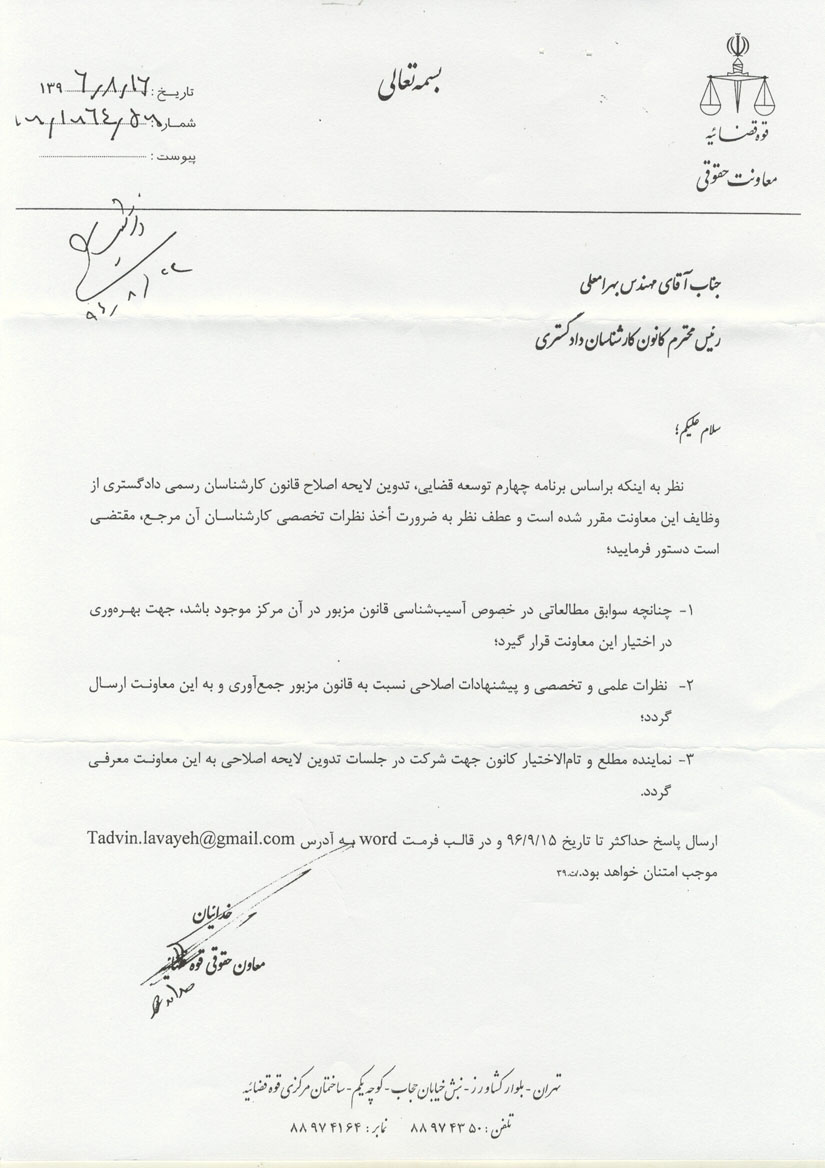 بسمه تعالی
قوه قضائیه
معاونت حقوقی
تاریخ: ۱۳۹۶/۸/۱۶
شماره:
پیوست:
جناب آقای مهندس بهرامعلی
رئیس محترم کانون کارشناسان دادگستری
سلام علیکم؛
نظر به اینکه براساس برنامه چهارم توسعه قضایی، تدوین لایحه اصلاح قانون کارشناسان رسمی دادگستری از
وظایف این معاونت مقرر شده است و عطف نظر به ضرورت أخذ نظرات تخصصی کارشناسان آن مرجع، مقتضی
است دستور فرمایید؛
۱- چنانچه سوابق مطالعاتی در خصوص آسیب‌شناسی قانون مزبور در آن مرکز موجود باشد، جهت بهره‌وری
در اختیار این معاونت قرار گیرد؛
۲- نظرات علمی و تخصصی و پیشنهادات اصلاحی نسبت به قانون مزبور جمع‌آوری و به این معاونت ارسال
گردد؛
۳- نماینده مطلع و تام‌الاختیار کانون جهت شرکت در جلسات تدوین لایحه اصلاحی به این معاونت معرفی
گردد.
ارسال پاسخ حداکثر تا تاریخ ۹۶/۹/۱۵ و در قالب فرمت word به آدرس Tadvin.lavayeh@gmail.com
موجب امتنان خواهد بود./ت۳۹
خدائیان
معاون حقوقی قوه قضائیه
تهران - بلوار کشاورز - نبش خیابان حجاب - کوچه یکم - ساختمان مرکزی قوه قضائیه
تلفن: ۸۸۹۷۴۳۵۰ نمابر: ۸۸۹۷۴۱۶۴